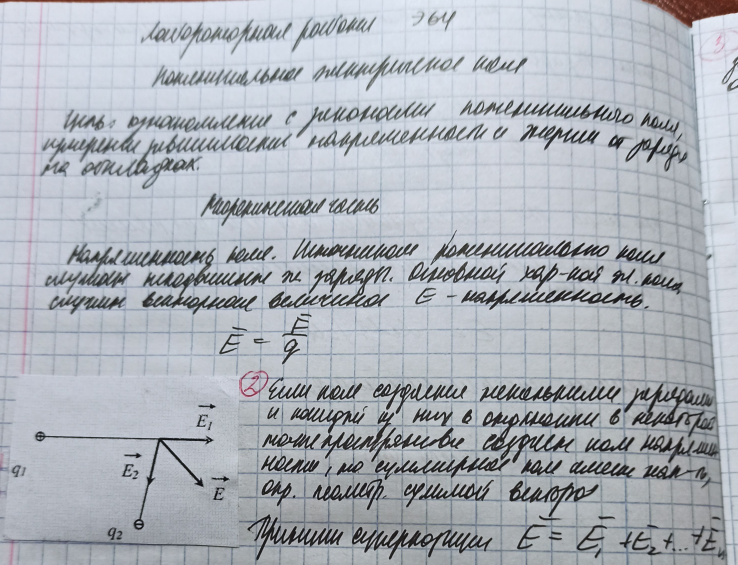 Лабораторная работа Э64
Потенциальное электрическое поле
Цель: ознакомление с законами потенциального поля,
измерение зависимости напряженности и энергии от заряда
на обкладках.
Теоретическая часть
Напряженность поля. Источником потенциального поля
служат неподвижные эл. заряды. Основной хар-кой эл. поля
служит векторная величина E - напряженность.
E = E/q
② Если поле создается несколькими зарядами
и каждый из них в отдельности в некоторой
точке пространства создает поле напряжен
ности, то суммарное поле имеет нап-ть,
опр. геометр. суммой векторов
Принцип суперпозиции E = E₁ + E₂ + ... + Eₙ
E₁
q₁
E₂
E
q₂
3